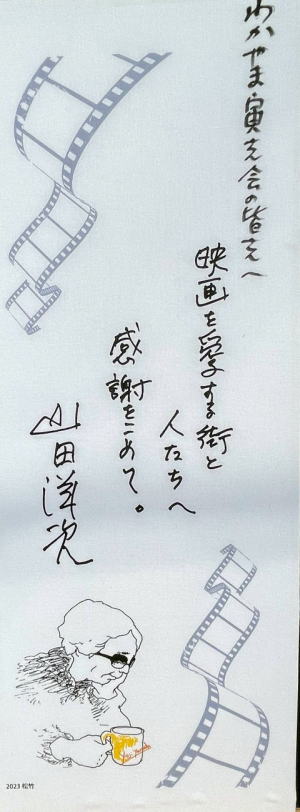 わかやま寅さん会の皆さんへ
映画を愛する街と
人たちへ
感謝をこめて。
山田洋次
2023 松竹